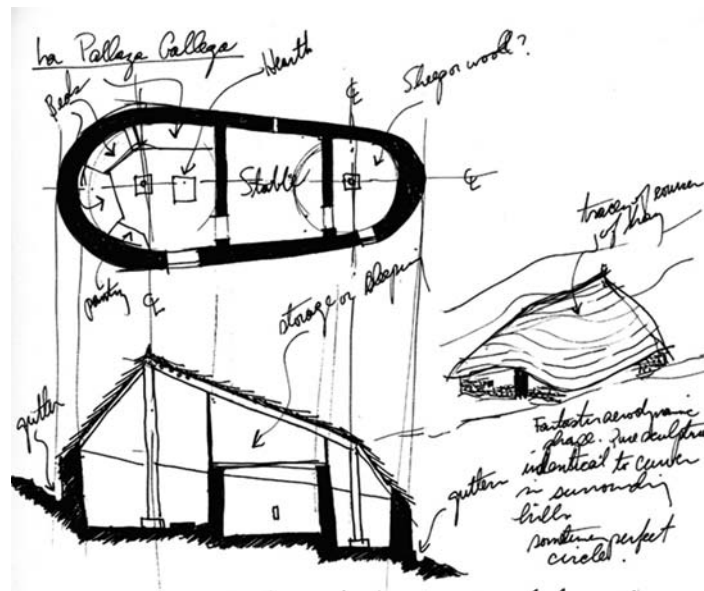 La Pallaza Gallega
Hearth
Beds
Sheep or wool?
℄
℄
Stable
pantry
℄
storage or sleeping
traces of courses
of hay
gutter
gutter
Fantastic aerodynamic
shape. Pure sculpture
identical to curves
in surrounding
hills
sometimes perfect
circle.